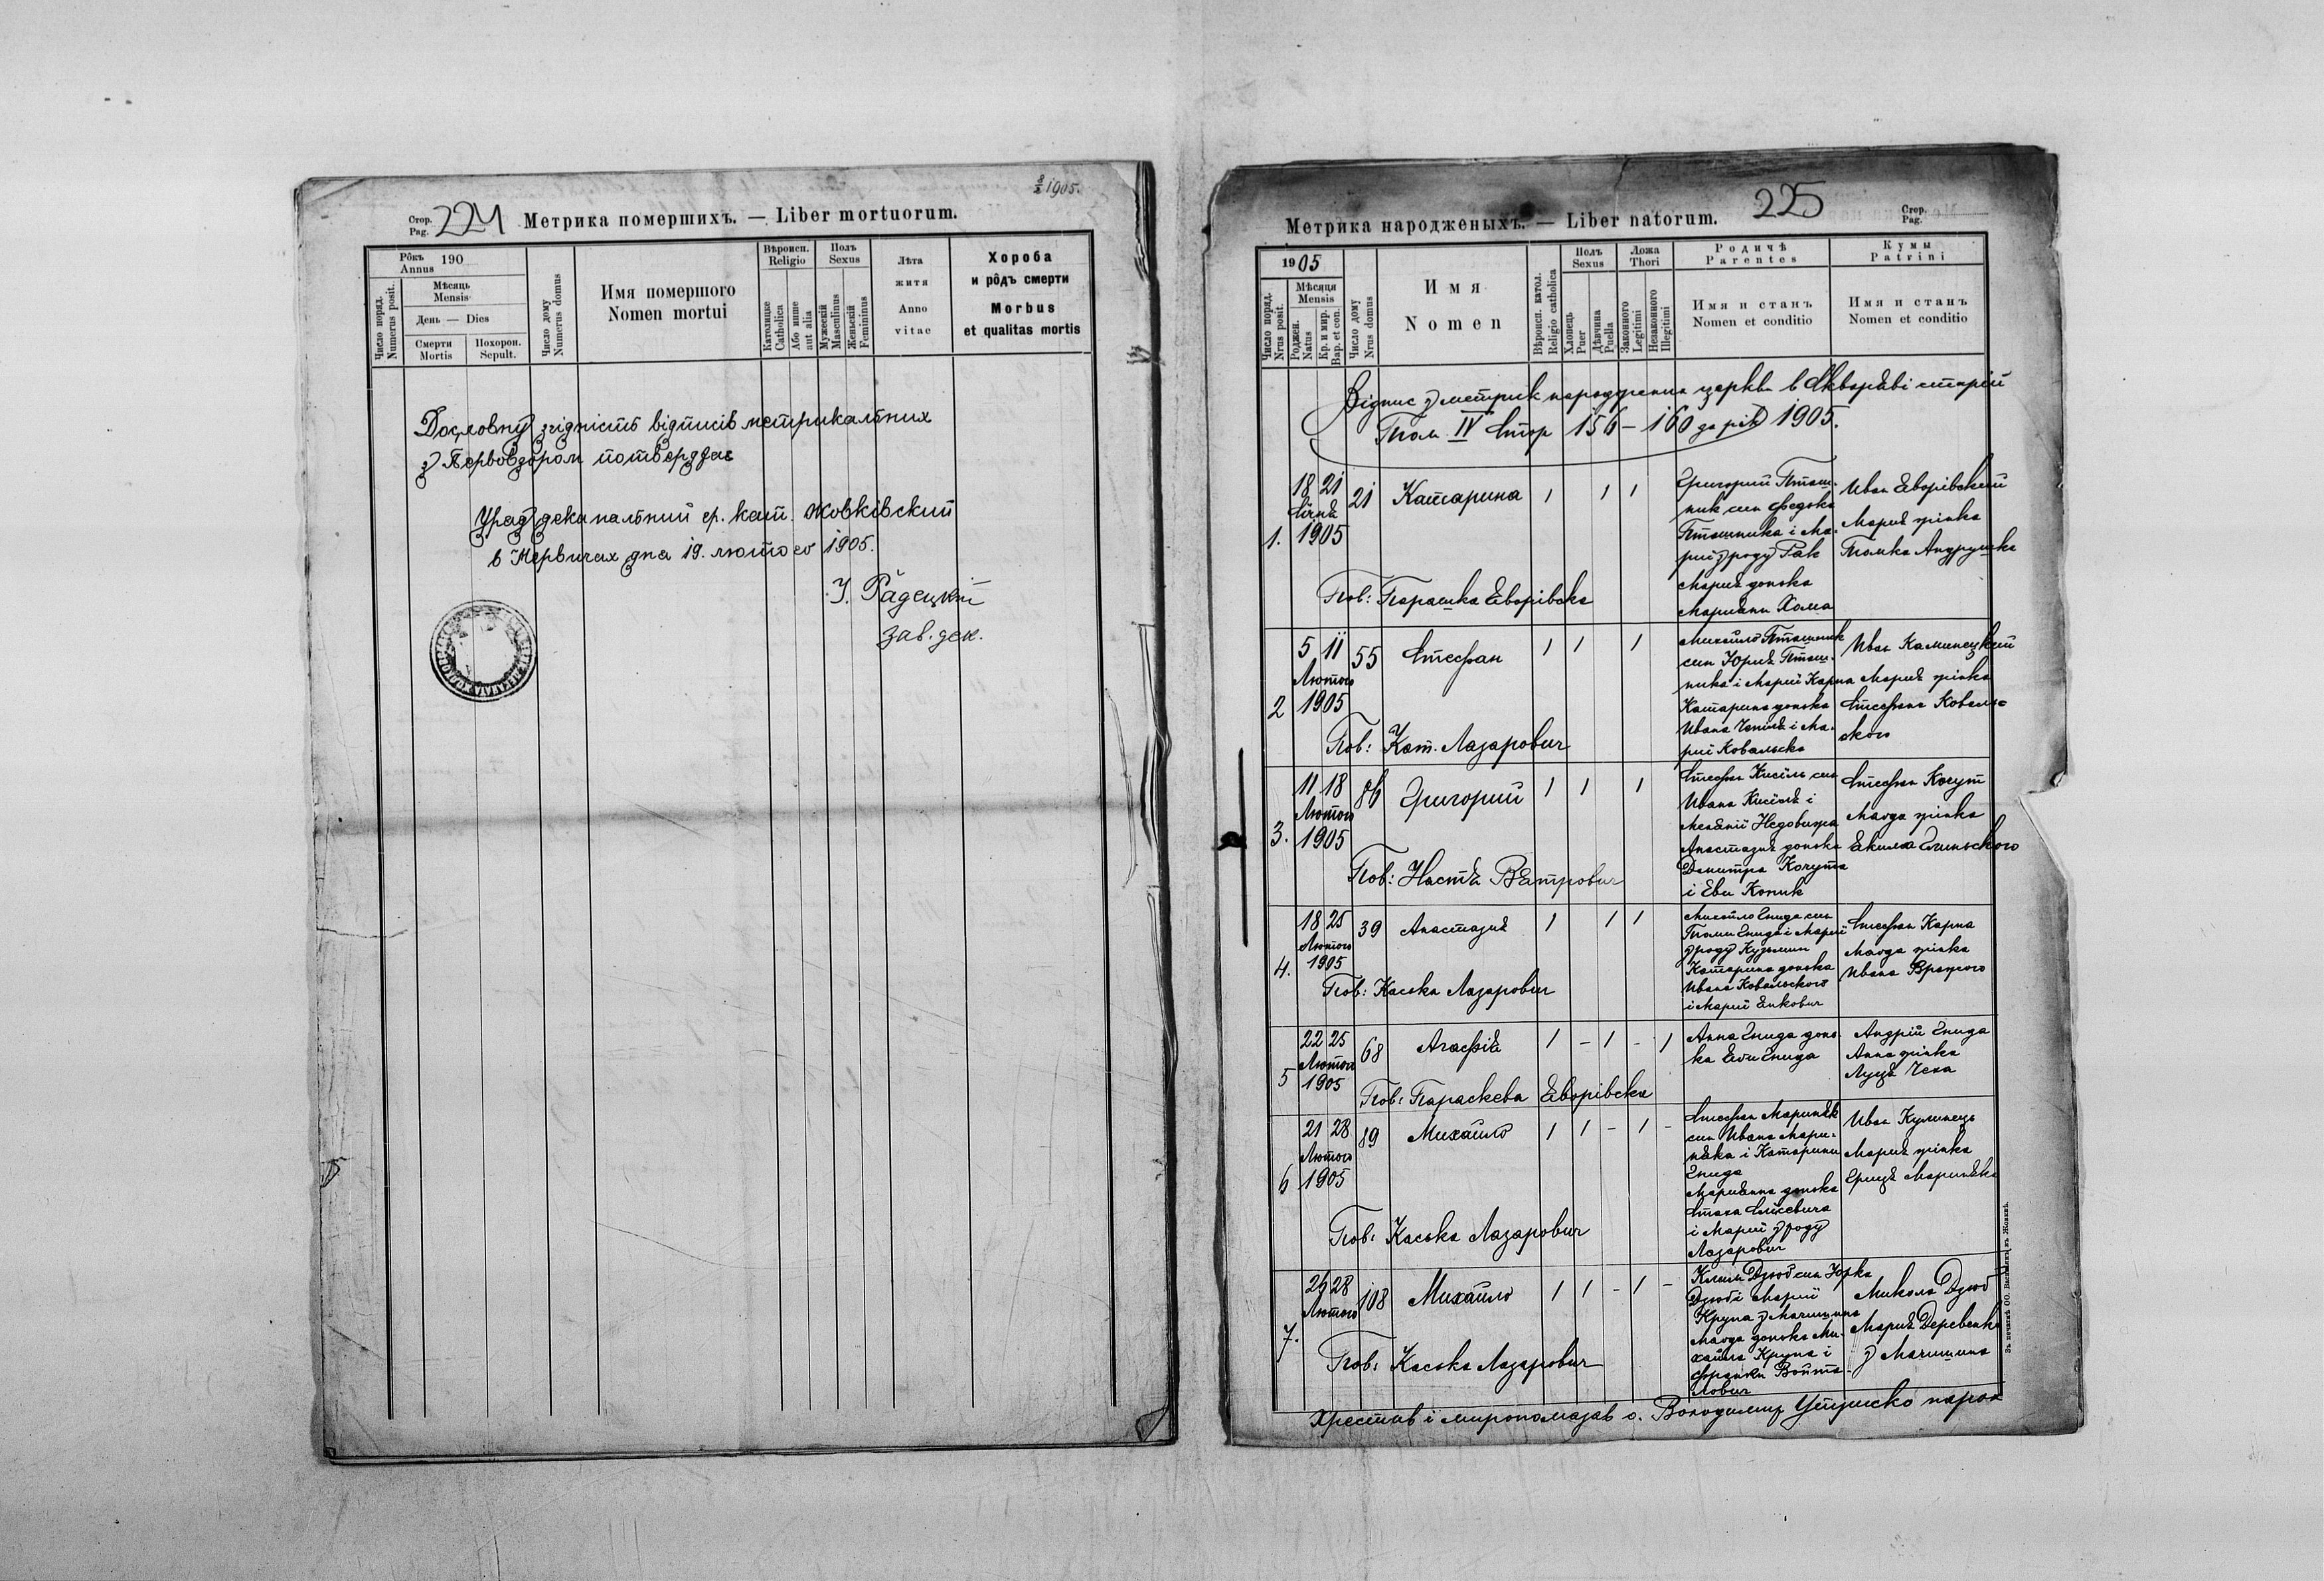 8/2 1905.
Стор.
Pag.
224
Метрика помершихъ. — Liber mortuorum.
Число поряд.
Numerus posit.
Рôкъ
Annus
190
Мѣсяць
Mensis
День — Dies
Смерти
Mortis
Похорон.
Sepult.
Число дому
Numerus domus
Имя помершого
Nomen mortui
Вѣроисп.
Religio
Католицке
Catholica
Або инше
aut alia
Полъ
Sexus
Мужескій
Masculinus
Женьскій
Femininus
Лѣта
житя
Anno
vitae
Хороба
и рôдъ смерти
Morbus
et qualitas mortis
Дословну згідність відписів метрикальних
з Первовзором потверджає
Уряд деканальний гр. кат. Жовківский
в Мервичах дна 19. лютого 1905.
І. Радецкій
зав. дек.
Метрика народженыхъ. — Liber natorum.
225
Стор.
Pag.
Число поряд.
Nrus posit.
1905
Мѣсяця
Mensis
Роджен.
Natus
Кр. и мир.
Bap. et con.
Число дому
Nrus domus
Имя
Nomen
Вѣроисп. катол.
Religio catholica
Полъ
Sexus
Хлопець
Puer
Дѣвчина
Puella
Ложа
Thori
Законного
Legitimi
Незаконного
Illegitimi
Родичѣ
Parentes
Имя и станъ
Nomen et conditio
Кумы
Patrini
Имя и станъ
Nomen et conditio
Відпис з метрик народження церкви в Скваряві старій
Том IV Стор 156 – 160 за рік 1905.
1. 18 21 Січня 1905 21 Катарина 1 1 1
Григорий Пташ-
ник син Федька
Пташника і Ма-
рії з роду Рак
Мария донька
Мариани Хома
Иван Яворівский
Мария жінка
Томка Андрушка
Пов: Парашка Яворівска
2 5 11 Лютого 1905 55 Стефан 1 1 1
Михайло Пташник
син Юрия Пташ-
ника і Марії Карпа
Катарина донька
Ивана Чепіля і Ма-
рії Ковальска
Иван Каминецкий
Мария жінка
Стефана Коваль-
ского
Пов: Кат. Лазарович
3. 11 18 Лютого 1905 86 Григорий 1 1 1
Стефан Кисіль син
Ивана Кисіля і
Меланії Недовижа
Анастазия донька
Димитра Когута
і Еви Копик
Стефан Когут
Магда жінка
Якима
Пов: Настя Вятрович
4. 18 25 Лютого 1905 39 Анастазия 1 1 1
Михайло Гнида син
Томи Гнида і Марії
з роду Кузьмин
Катарина донька
Ивана Ковальского
і Марії Янкович
Стефан Карпа
Магда жінка
Ивана
Пов: Каська Лазарович
5 22 25 Лютого 1905 68 Агафія 1 – 1 – 1
Анна Гнида донь-
ка Еви Гнида
Андрій Гнида
Анна жінка
Луця Чеха
Пов: Параскева Яворівска
6 21 28 Лютого 1905 89 Михайло 1 1 – 1 –
Стефан Мариняк
син Ивана Мари-
няка і Катарини
Гнида
Марианна донька
Стаха
і Марії з роду
Лазарович
Иван Кулинець
Мария жінка
Гриця Мариняка
Пов: Каська Лазарович
7. 26 28 Лютого 108 Михайло 1 1 – 1 –
Клим Дзюб син Юрка
Дзюб і Марії
Крупа з Мачишина
Магда донька Ми-
хайла Крупа і
Франки Войта-
лович
Микола Дзюб
Мария Деревенка
з Мачишина
Пов: Каська Лазарович
Хрестив і миропомазав о. Володимир Утриско парох
За печатнѣ ОО. Василіянъ въ Жовквѣ.